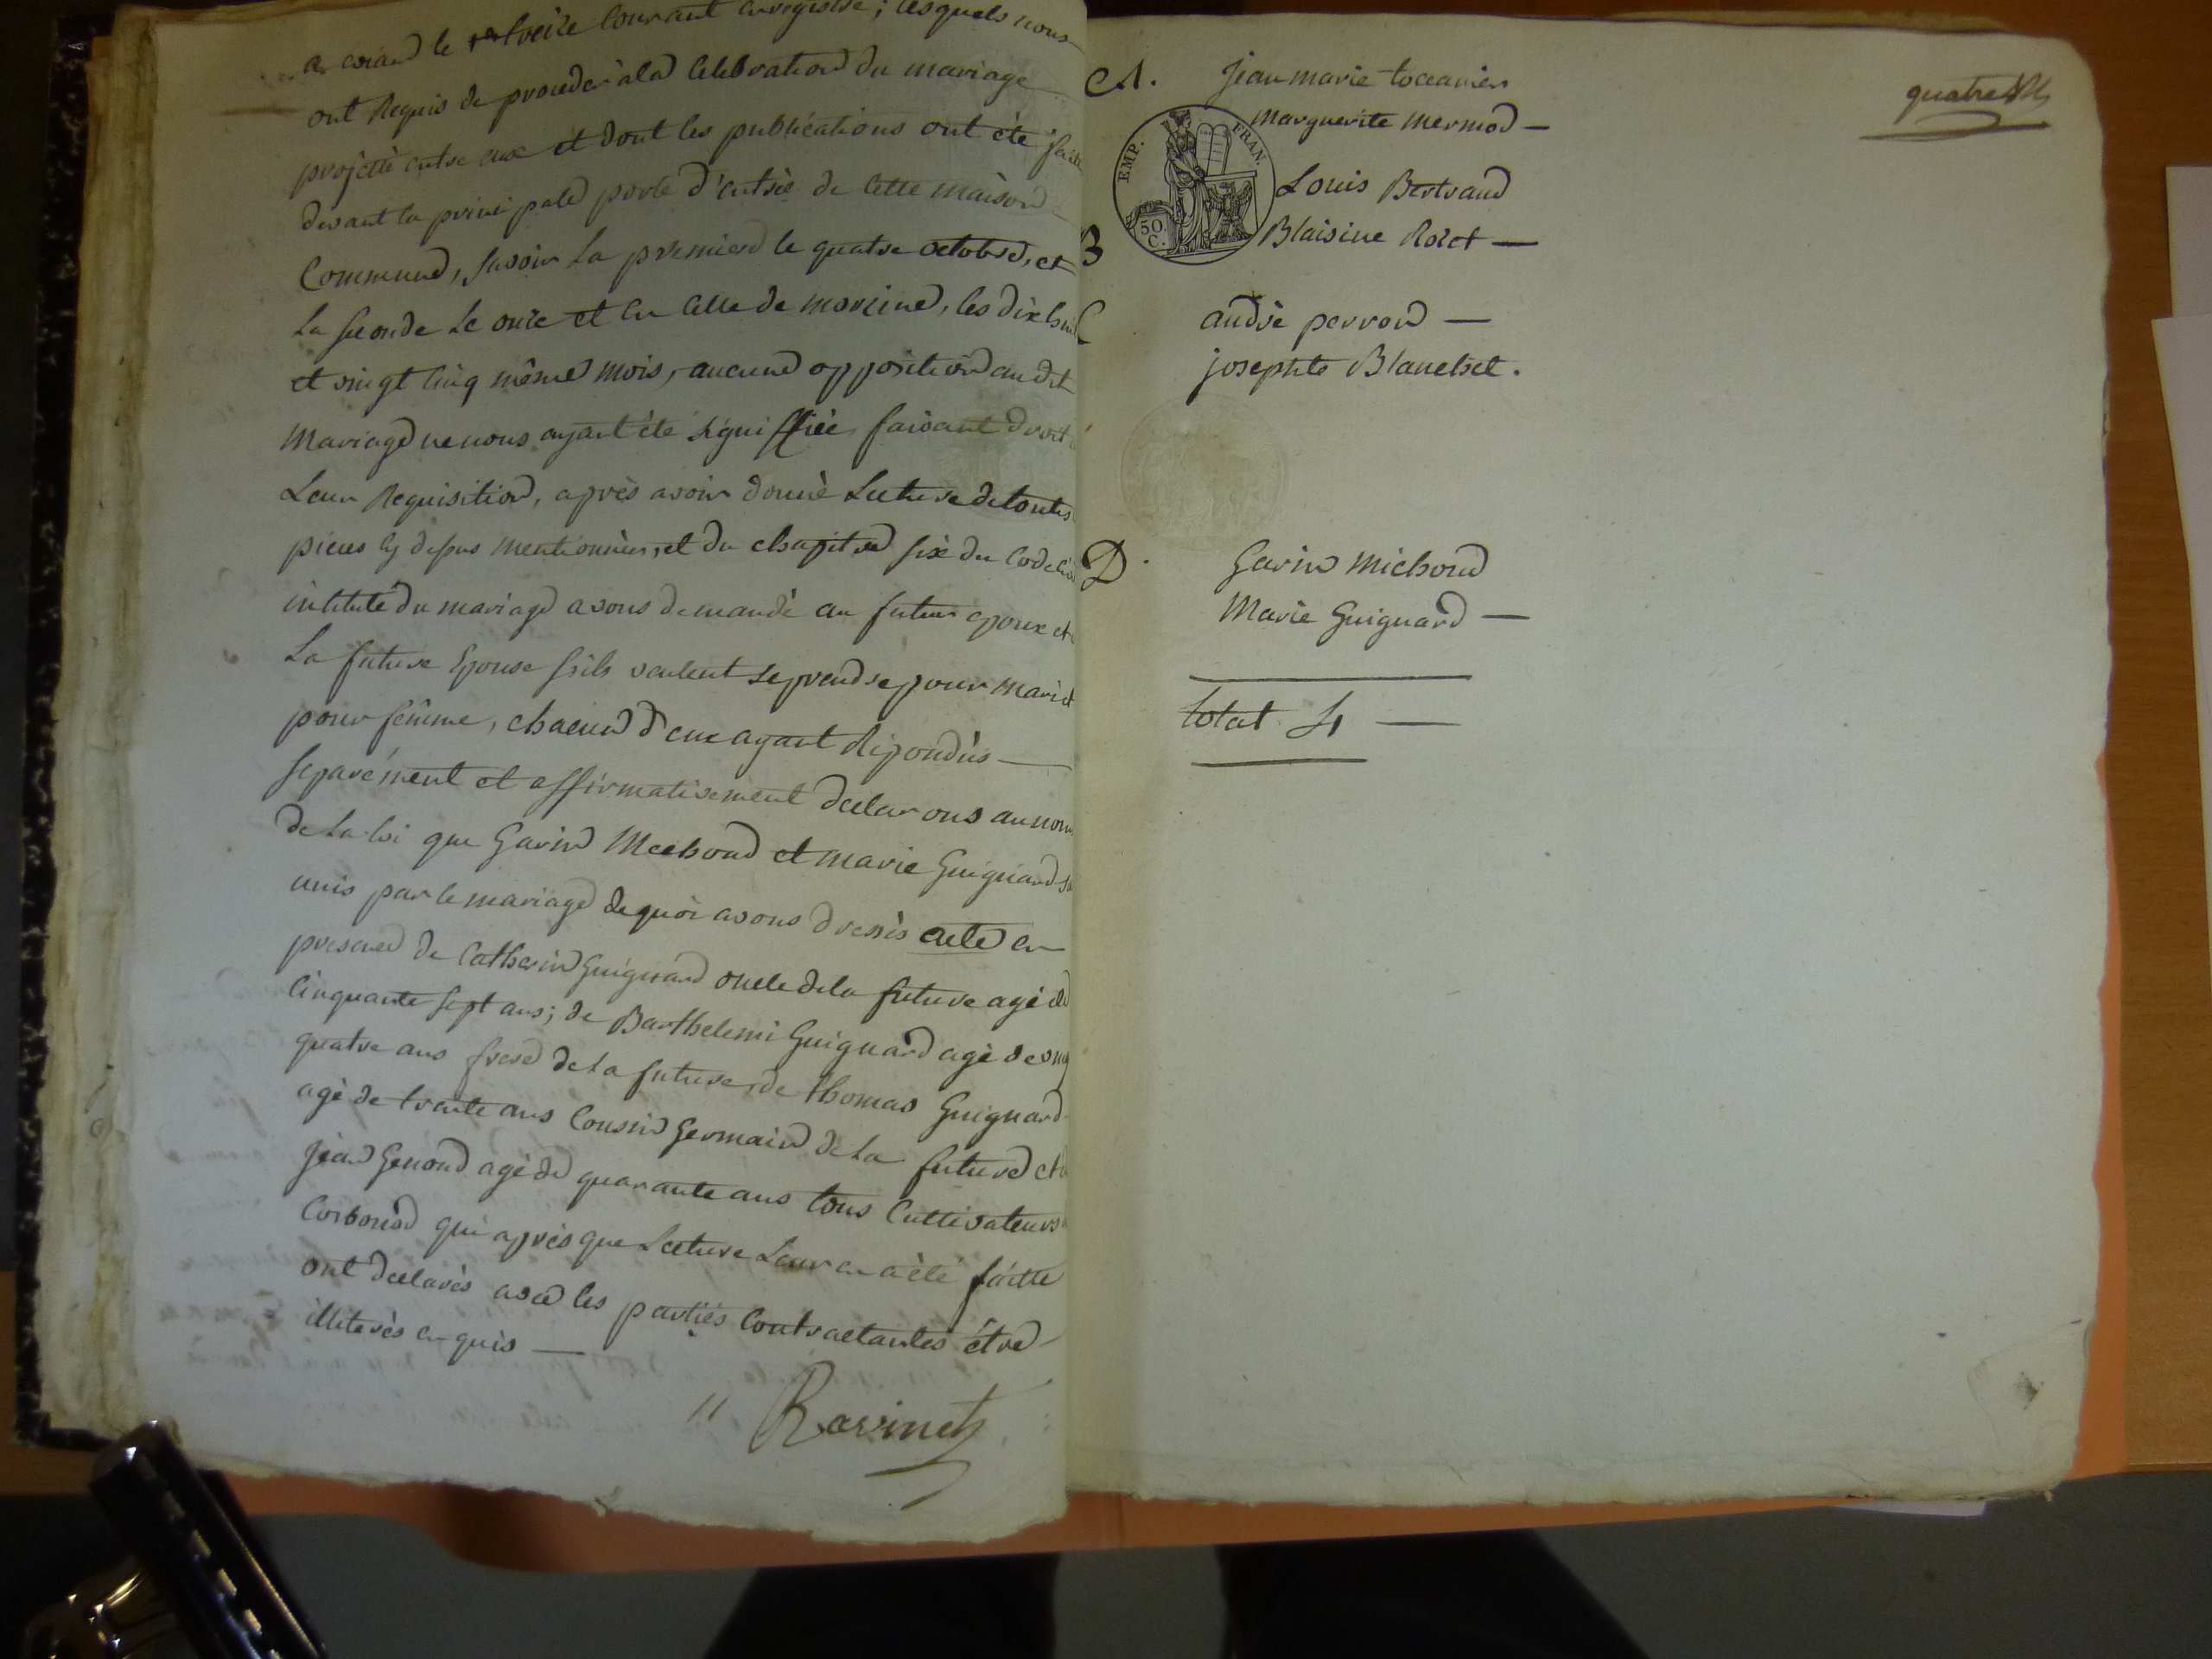 le treize Courant enregistré; lesquels nous
ont Requis de proceder à la Celebration du mariage
projetté entre eux et dont les publications ont été
devant la principale porte d'entrée de Cette maison
Commune, savoir La premiere le quatre octobre, et
La seconde Le onze et en Celle de morzine, les dix huit
et vingt Cinq même mois, aucune opposition au dit
Mariage ne nous ayant été signiffiée faisant droit
Leur Requisition, après avoir donné Lecture de toutes
pieces cy dessus mentionnées, et du chapitre six du Code
intitulé du mariage avons demandé au futur epoux et
La future Epouse s'ils veulent se prendre pour mari et
pour femme, chacun d'eux ayant Répondus —
separément et affirmativement declarons au nom
de La loi que Garin Michoud et marie Guignard
unis par le mariage de quoi avons dressés acte en
presence de Catherin Guignard oncle de la future agé de
Cinquante sept ans; de Barthelemi Guignard agé de
quatre ans frere de La future, de thomas Guignard
agé de trente ans Cousin Germain de La future et
Jean Genoud agé de quarante ans tous Cultivateurs
Corbonod qui après que Lecture Leur en a été faitte
ont declarés avec les parties Contractantes être
illiterés enquis —
Ravinet
A. Jean marie
marguerite mermod —
EMP. FRAN.
50 C.
Louis Bertrand
B Blaisine Rolet —
C andré perron —
josephte Blanchet.
D. Garin Michoud
Marie Guignard —
total 4 —
quatre